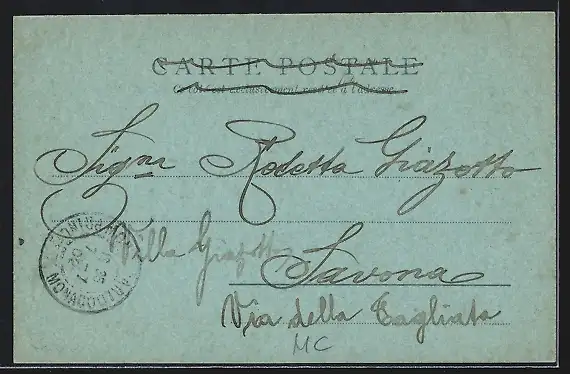 CARTE POSTALE
Ce côté est exclusivement réservé à l'adresse
Sigra Rodetta Giazotto
Villa Giazotto
Savona
Via della Tagliata
MC
MONACO